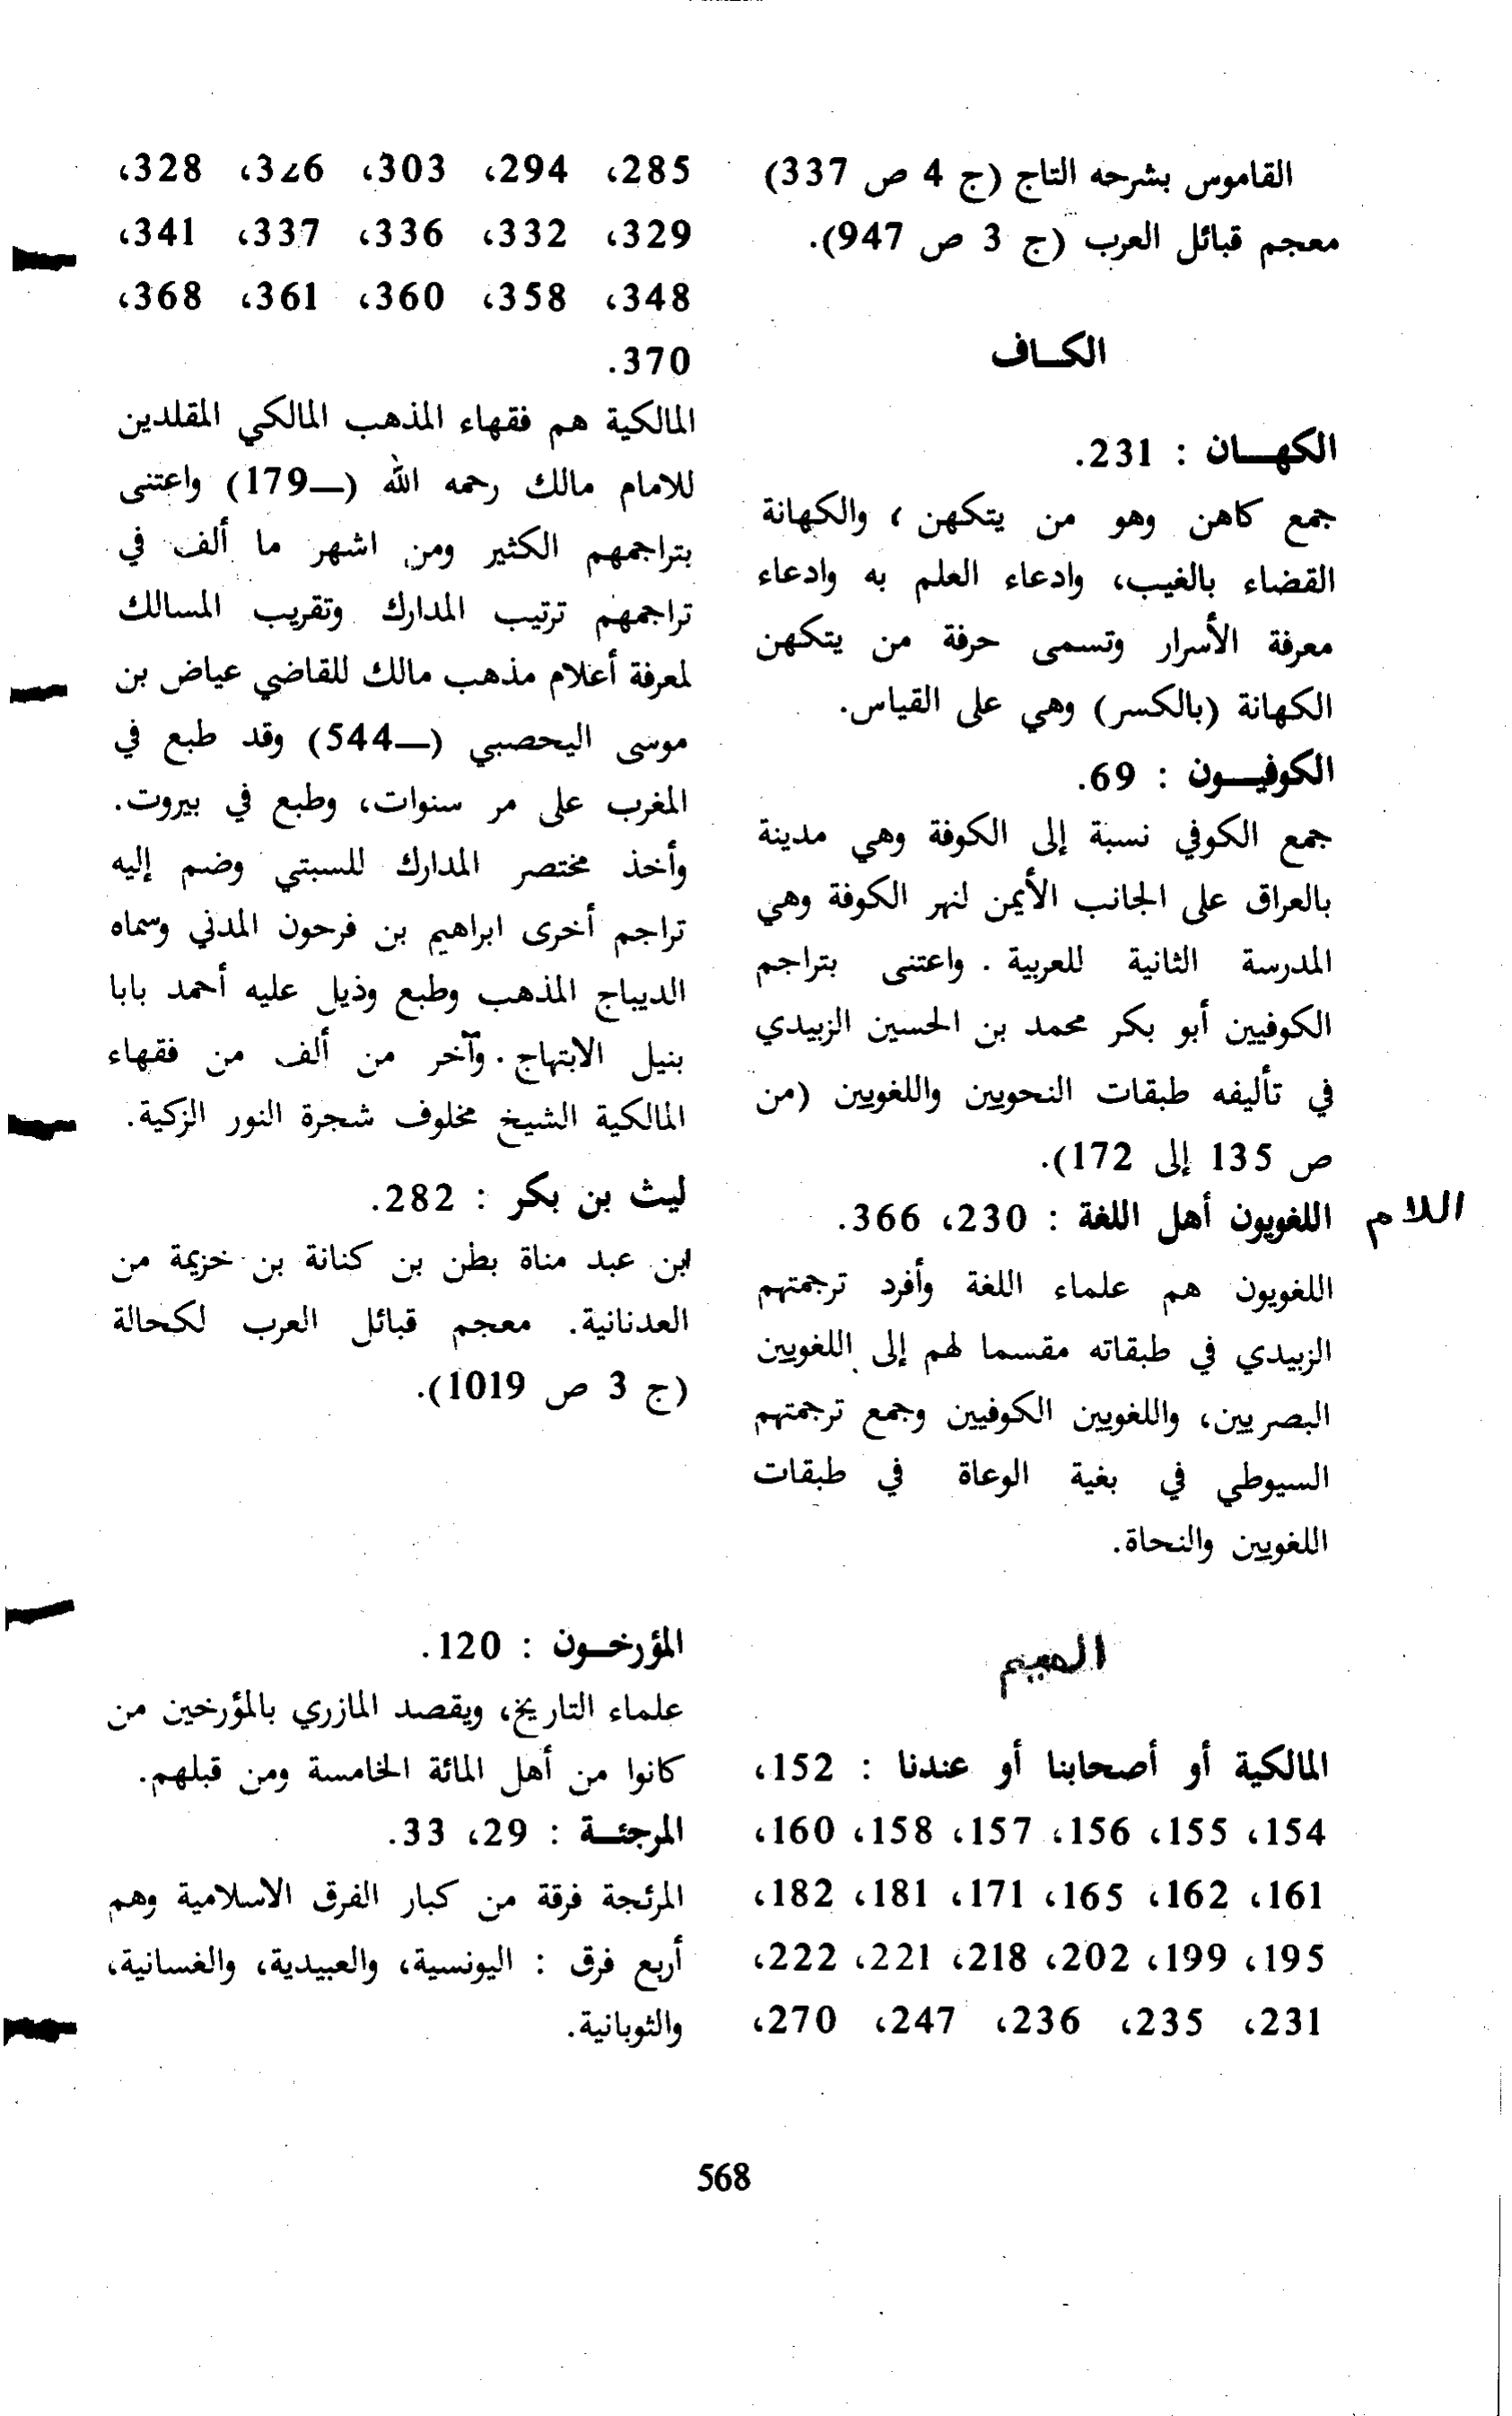 القاموس بشرحه التاج (ج 4 ص 337)
معجم قبائل العرب (ج 3 ص 947).
الكـاف
الكهـان : 231.
جمع كاهن وهو من يتكهن ، والكهانة
القضاء بالغيب، وادعاء العلم به وادعاء
معرفة الأسرار وتسمى حرفة من يتكهن
الكهانة (بالكسر) وهي على القياس.
الكوفيـون : 69.
جمع الكوفي نسبة إلى الكوفة وهي مدينة
بالعراق على الجانب الأيمن لنهر الكوفة وهي
المدرسة الثانية للعربية . واعتنى بتراجم
الكوفيين أبو بكر محمد بن الحسين الزبيدي
في تأليفه طبقات النحويين واللغويين (من
ص 135 إلى 172).
اللام
اللغويون أهل اللغة : 230، 366.
اللغويون هم علماء اللغة وأفرد ترجمتهم
الزبيدي في طبقاته مقسما لهم إلى اللغويين
البصريين، واللغويين الكوفيين وجمع ترجمتهم
السيوطي في بغية الوعاة في طبقات
اللغويين والنحاة.
الميم
المالكية أو أصحابنا أو عندنا : 152،
154، 155، 156، 157، 158، 160،
161، 162، 165، 171، 181، 182،
195، 199، 202، 218، 221، 222،
231، 235، 236، 247، 270،
285، 294، 303، 326، 328،
329، 332، 336، 337، 341،
348، 358، 360، 361، 368،
370.
المالكية هم فقهاء المذهب المالكي المقلدين
للامام مالك رحمه الله (—179) واعتنى
بتراجمهم الكثير ومن اشهر ما ألف في
تراجمهم ترتيب المدارك وتقريب المسالك
لمعرفة أعلام مذهب مالك للقاضي عياض بن
موسى اليحصبي (—544) وقد طبع في
المغرب على مر سنوات، وطبع في بيروت.
وأخذ مختصر المدارك للسبتي وضم إليه
تراجم أخرى ابراهيم بن فرحون المدني وسماه
الديباج المذهب وطبع وذيل عليه أحمد بابا
بنيل الابتهاج. وآخر من ألف من فقهاء
المالكية الشيخ مخلوف شجرة النور الزكية.
ليث بن بكر : 282.
ابن عبد مناة بطن بن كنانة بن خزيمة من
العدنانية. معجم قبائل العرب لكحالة
(ج 3 ص 1019).
المؤرخـون : 120.
علماء التاريخ، ويقصد المازري بالمؤرخين من
كانوا من أهل المائة الخامسة ومن قبلهم.
المرجئـة : 29، 33.
المرئجة فرقة من كبار الفرق الاسلامية وهم
أربع فرق : اليونسية، والعبيدية، والغسانية،
والثوبانية.
568